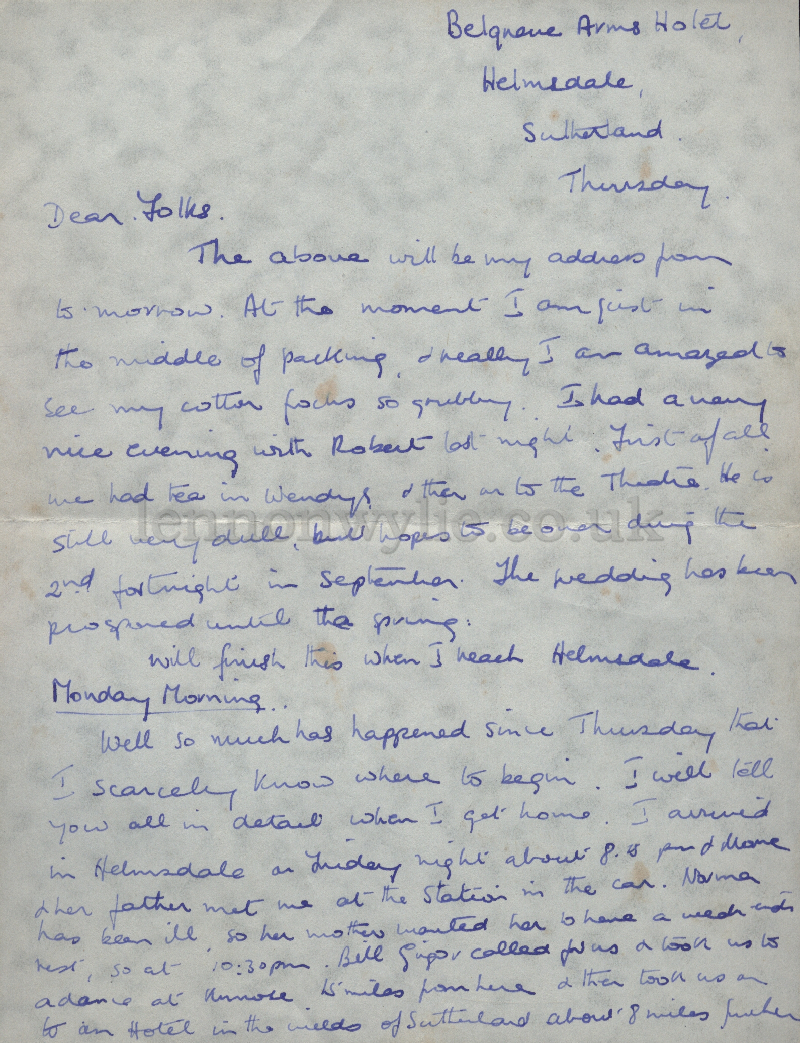 Belgrave Arms Hotel,
Helmsdale,
Sutherland.
Thursday.
Dear Folks.
The above will be my address from
to-morrow. At the moment I am just in
the middle of packing, & really I am amazed to
see my cotton focks so grubby. I had a very
nice evening with Robert last night. First of all
we had tea in Wendys, & then on to the Theatre. He is
lennonwylie.co.uk
still very dull, but hopes to be over during the
2nd fortnight in September. The wedding has been
prosponed until the spring.
Will finish this when I reach Helmsdale.
Monday Morning..
Well so much has happened since Thursday that
I scarcely know where to begin. I will tell
you all in detail when I get home. I arrived
in Helmsdale on Friday night about 8.15 pm &
& her father met me at the Station in the car. Norma
has been ill, so her mother wanted her to have a week-ends
rest, so at 10:30pm. Bill called for us & took us to
a dance at 15 miles from here & then took us on
to an Hotel in the wilds of Sutherland about 8 miles further